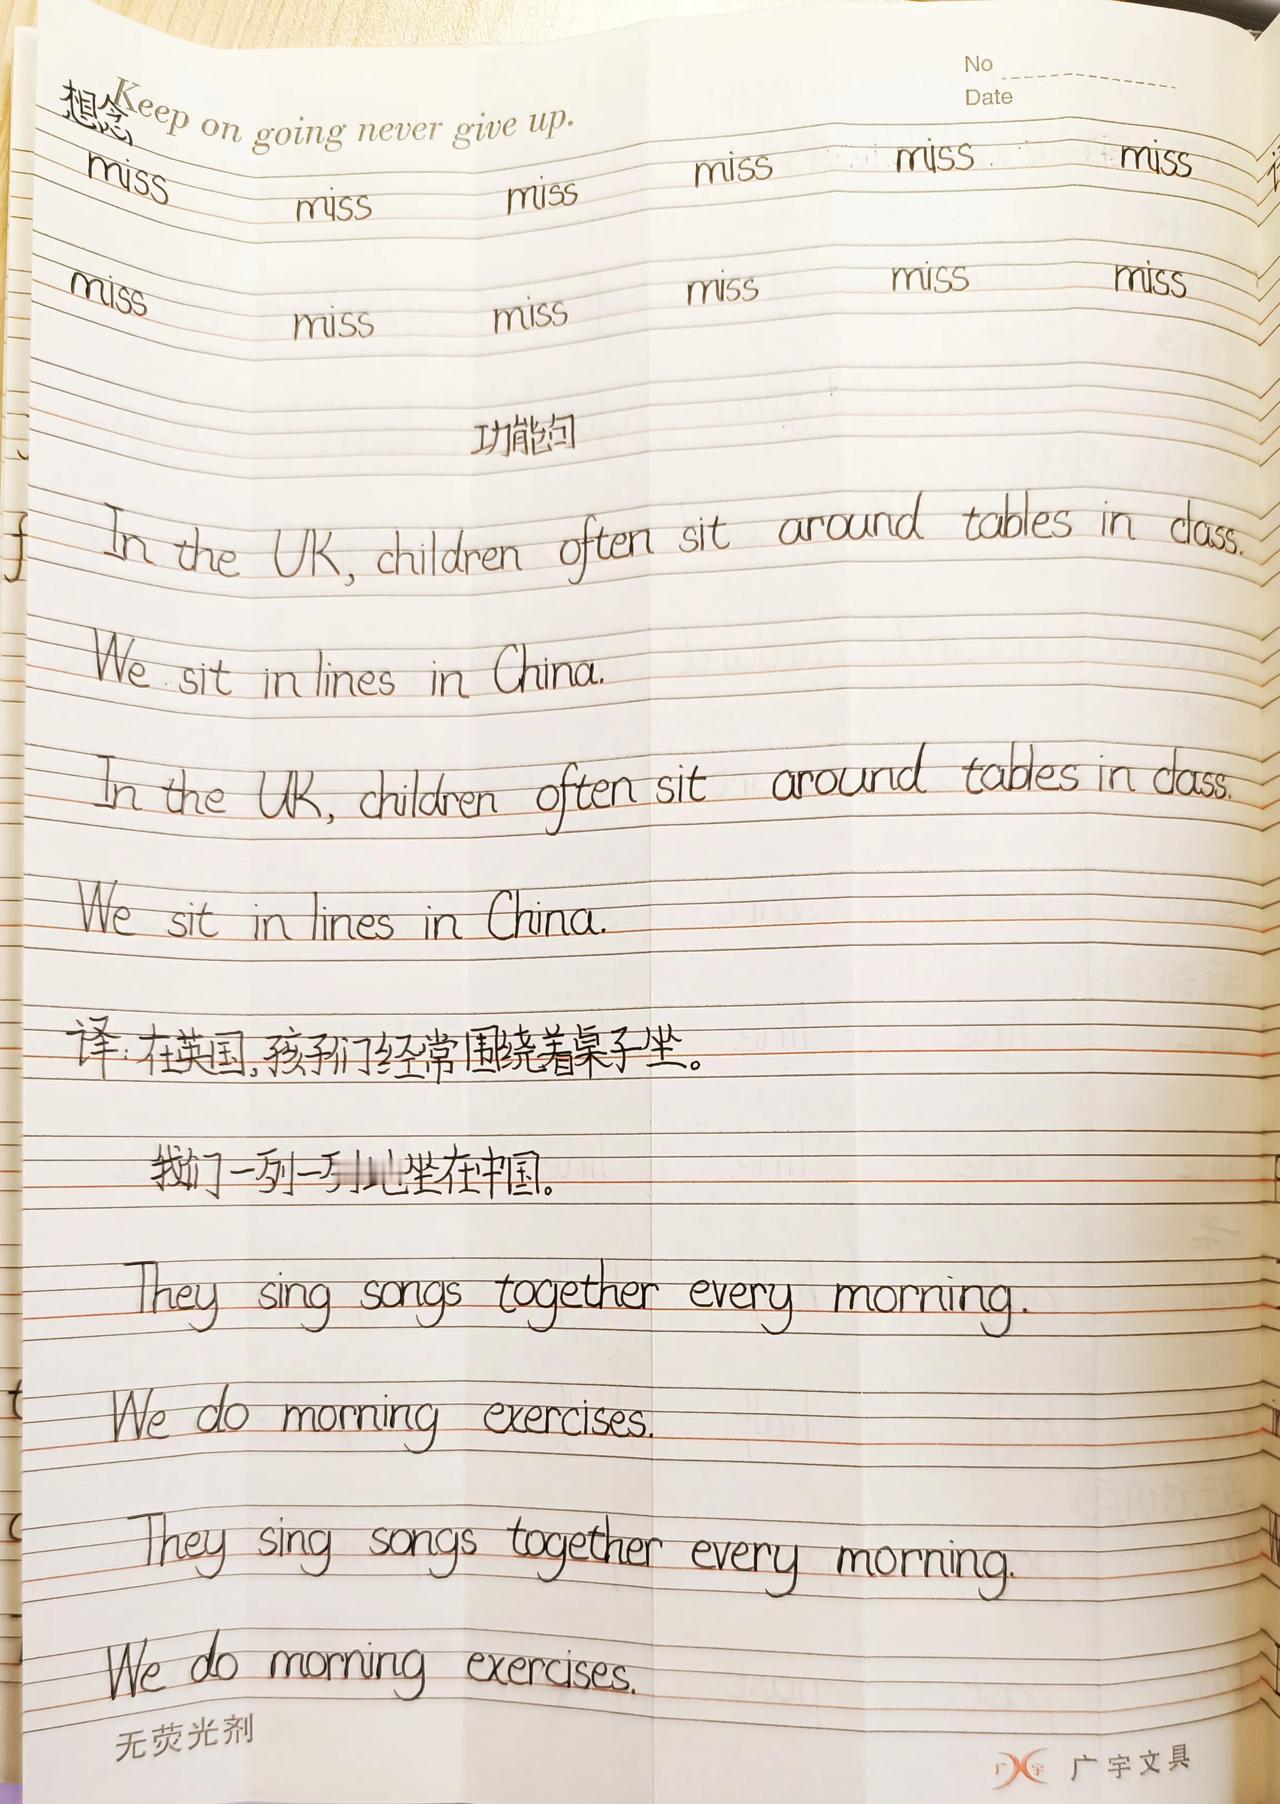 No
Date
Keep on going never give up.
想念
miss miss miss miss miss miss
miss miss miss miss miss miss
功能句
In the UK, children often sit around tables in class.
We sit in lines in China.
In the UK, children often sit around tables in class.
We sit in lines in China.
译:在英国,孩子们经常围绕着桌子坐。
我们一列一列地坐在中国。
They sing songs together every morning.
We do morning exercises.
They sing songs together every morning.
We do morning exercises.
无荧光剂
广宇文具